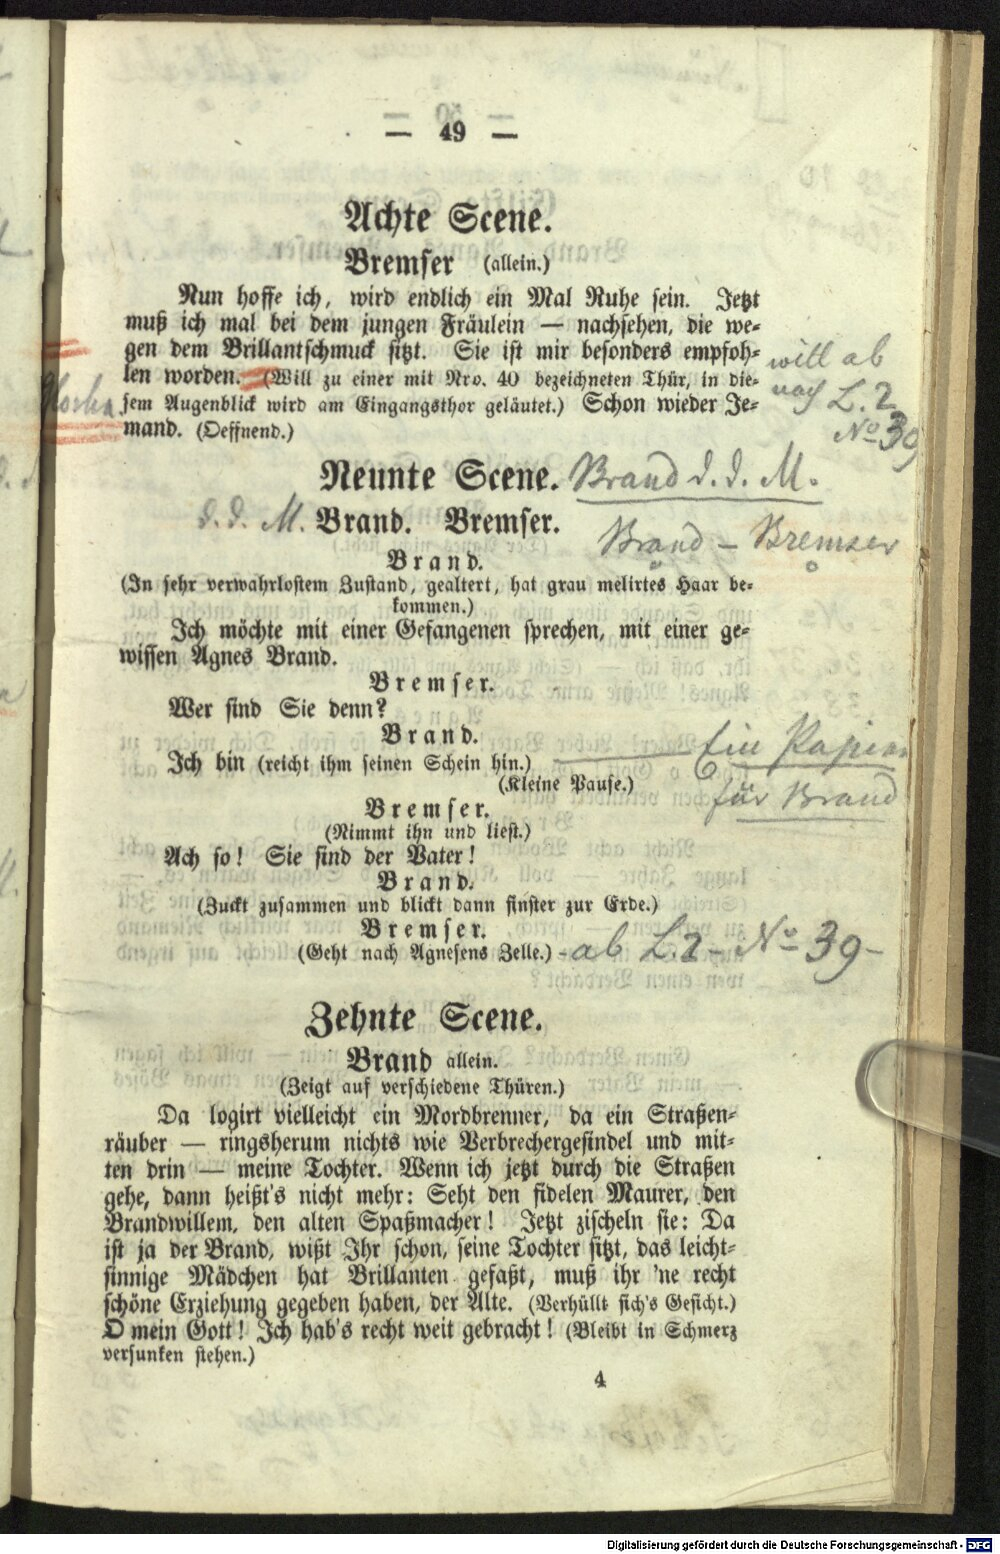 — 49 —
Achte Scene.
Bremser (allein.)
Nun hoffe ich, wird endlich ein Mal Ruhe sein. Jetzt
muß ich mal bei dem jungen Fräulein — nachsehen, die we-
gen dem Brillantschmuck sitzt. Sie ist mir besonders empfoh-
will ab
len worden. (Will zu einer mit Nro. 40 bezeichneten Thür, in die-
nach L. 2
sem Augenblick wird am Eingangsthor geläutet.) Schon wieder Je-
No 39
mand. (Oeffnend.)
Neunte Scene. Brand d. d. M.
d. d. M. Brand. Bremser.
Brand – Bremser
Brand.
(In sehr verwahrlostem Zustand, gealtert, hat grau melirtes Haar be-
kommen.)
Ich möchte mit einer Gefangenen sprechen, mit einer ge-
wissen Agnes Brand.
Bremser.
Wer sind Sie denn?
Brand.
Ich bin (reicht ihm seinen Schein hin.) Ein Papier
(Kleine Pause.) für Brand
Bremser.
(Nimmt ihn und liest.)
Ach so! Sie sind der Vater!
Brand.
(Zuckt zusammen und blickt dann finster zur Erde.)
Bremser.
(Geht nach Agnesens Zelle.) - ab L. 2 - No 39 -
Zehnte Scene.
Brand allein.
(Zeigt auf verschiedene Thüren.)
Da logirt vielleicht ein Mordbrenner, da ein Straßen-
räuber — ringsherum nichts wie Verbrechergesindel und mit-
ten drin — meine Tochter. Wenn ich jetzt durch die Straßen
gehe, dann heißt's nicht mehr: Seht den fidelen Maurer, den
Brandwillem, den alten Spaßmacher! Jetzt zischeln sie: Da
ist ja der Brand, wißt Ihr schon, seine Tochter sitzt, das leicht-
sinnige Mädchen hat Brillanten gefaßt, muß ihr 'ne recht
schöne Erziehung gegeben haben, der Alte. (Verhüllt sich's Gesicht.)
O mein Gott! Ich hab's recht weit gebracht! (Bleibt in Schmerz
versunken stehen.)
4
Digitalisierung gefördert durch die Deutsche Forschungsgemeinschaft - DFG